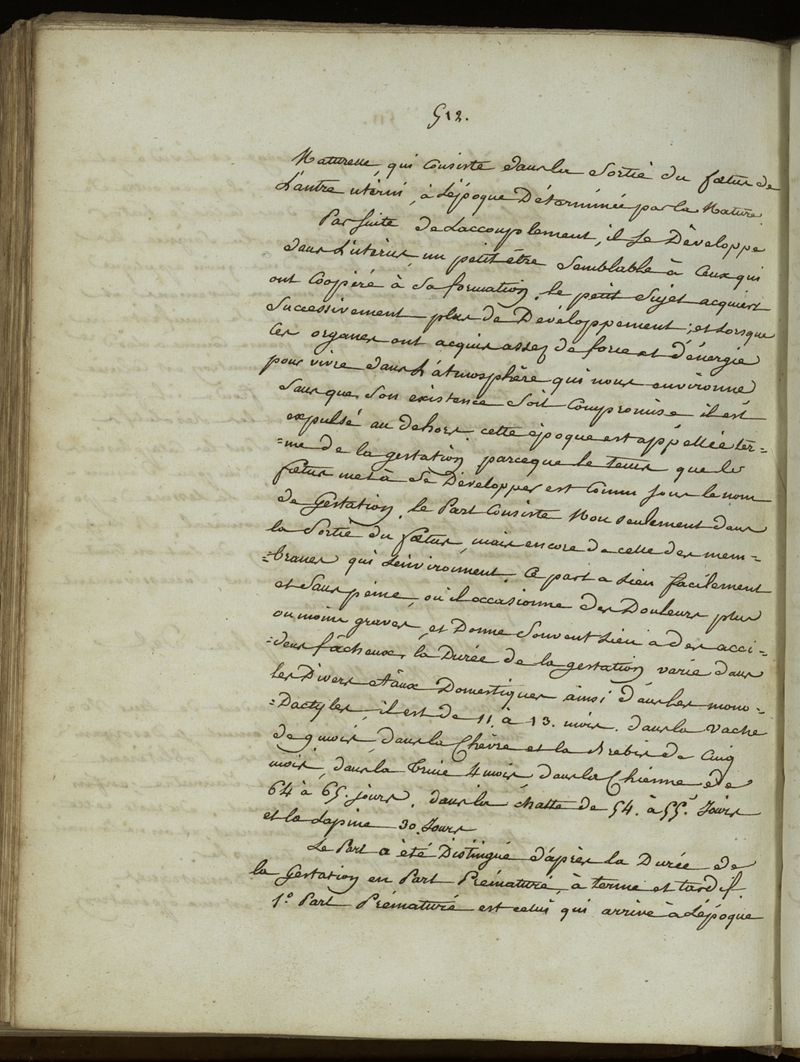 512.
Naturelle, qui consiste dans la Sortié du fœtus de
L'antre utérin, à L'époque Déterminée par la Nature.
Par Suite de L'accouplement, il se Développe
dans L'utérus, un petit être Semblable à Ceux qui
ont Coopéré à Sa formation, le petit Sujet acquiert
Successivement plus de Développement, et Lorsque
Ces organes ont acquis assez de force et d'énergie
pour vivre dans L'atmosphère qui nous environne
Sans que Son existence Soit Compromise il est
expulsé au dehors. cette époque est appellée ter-
=me de la gestation, parceque le tems que le
fœtus met à Se Développer est Connu sous le nom
de Gestation. le Part Consiste Non seulement dans
la Sortié du fœtus, mais encore de celle des mem-
=branes qui L'environnent. Ce part a Lieu facilement
et Sans peine, ou il occasionne des Douleurs plus
ou moins graves, et Donne Souvent Lieu a des acci-
=dens fâcheux. la Durée de la gestation varie dans
les Divers aãux Domestiques, ainsi dans Les mono-
=Dactyles, il est de 11. à 13. mois. dans la vache
de 9 mois, dans la Chèvre et la Brebis de Cinq
mois, dans la Truie 4 mois, dans la Chienne de
64 à 65. jours. dans la chatte de 54. à 55. Jours
et la Lapine 30. Jours
Le Part a été Distingué d'après la Durée de
la Gestation en Part Prématuré, à terme et tardif.
1.° Part Prématuré est celui qui arrive à L'époque